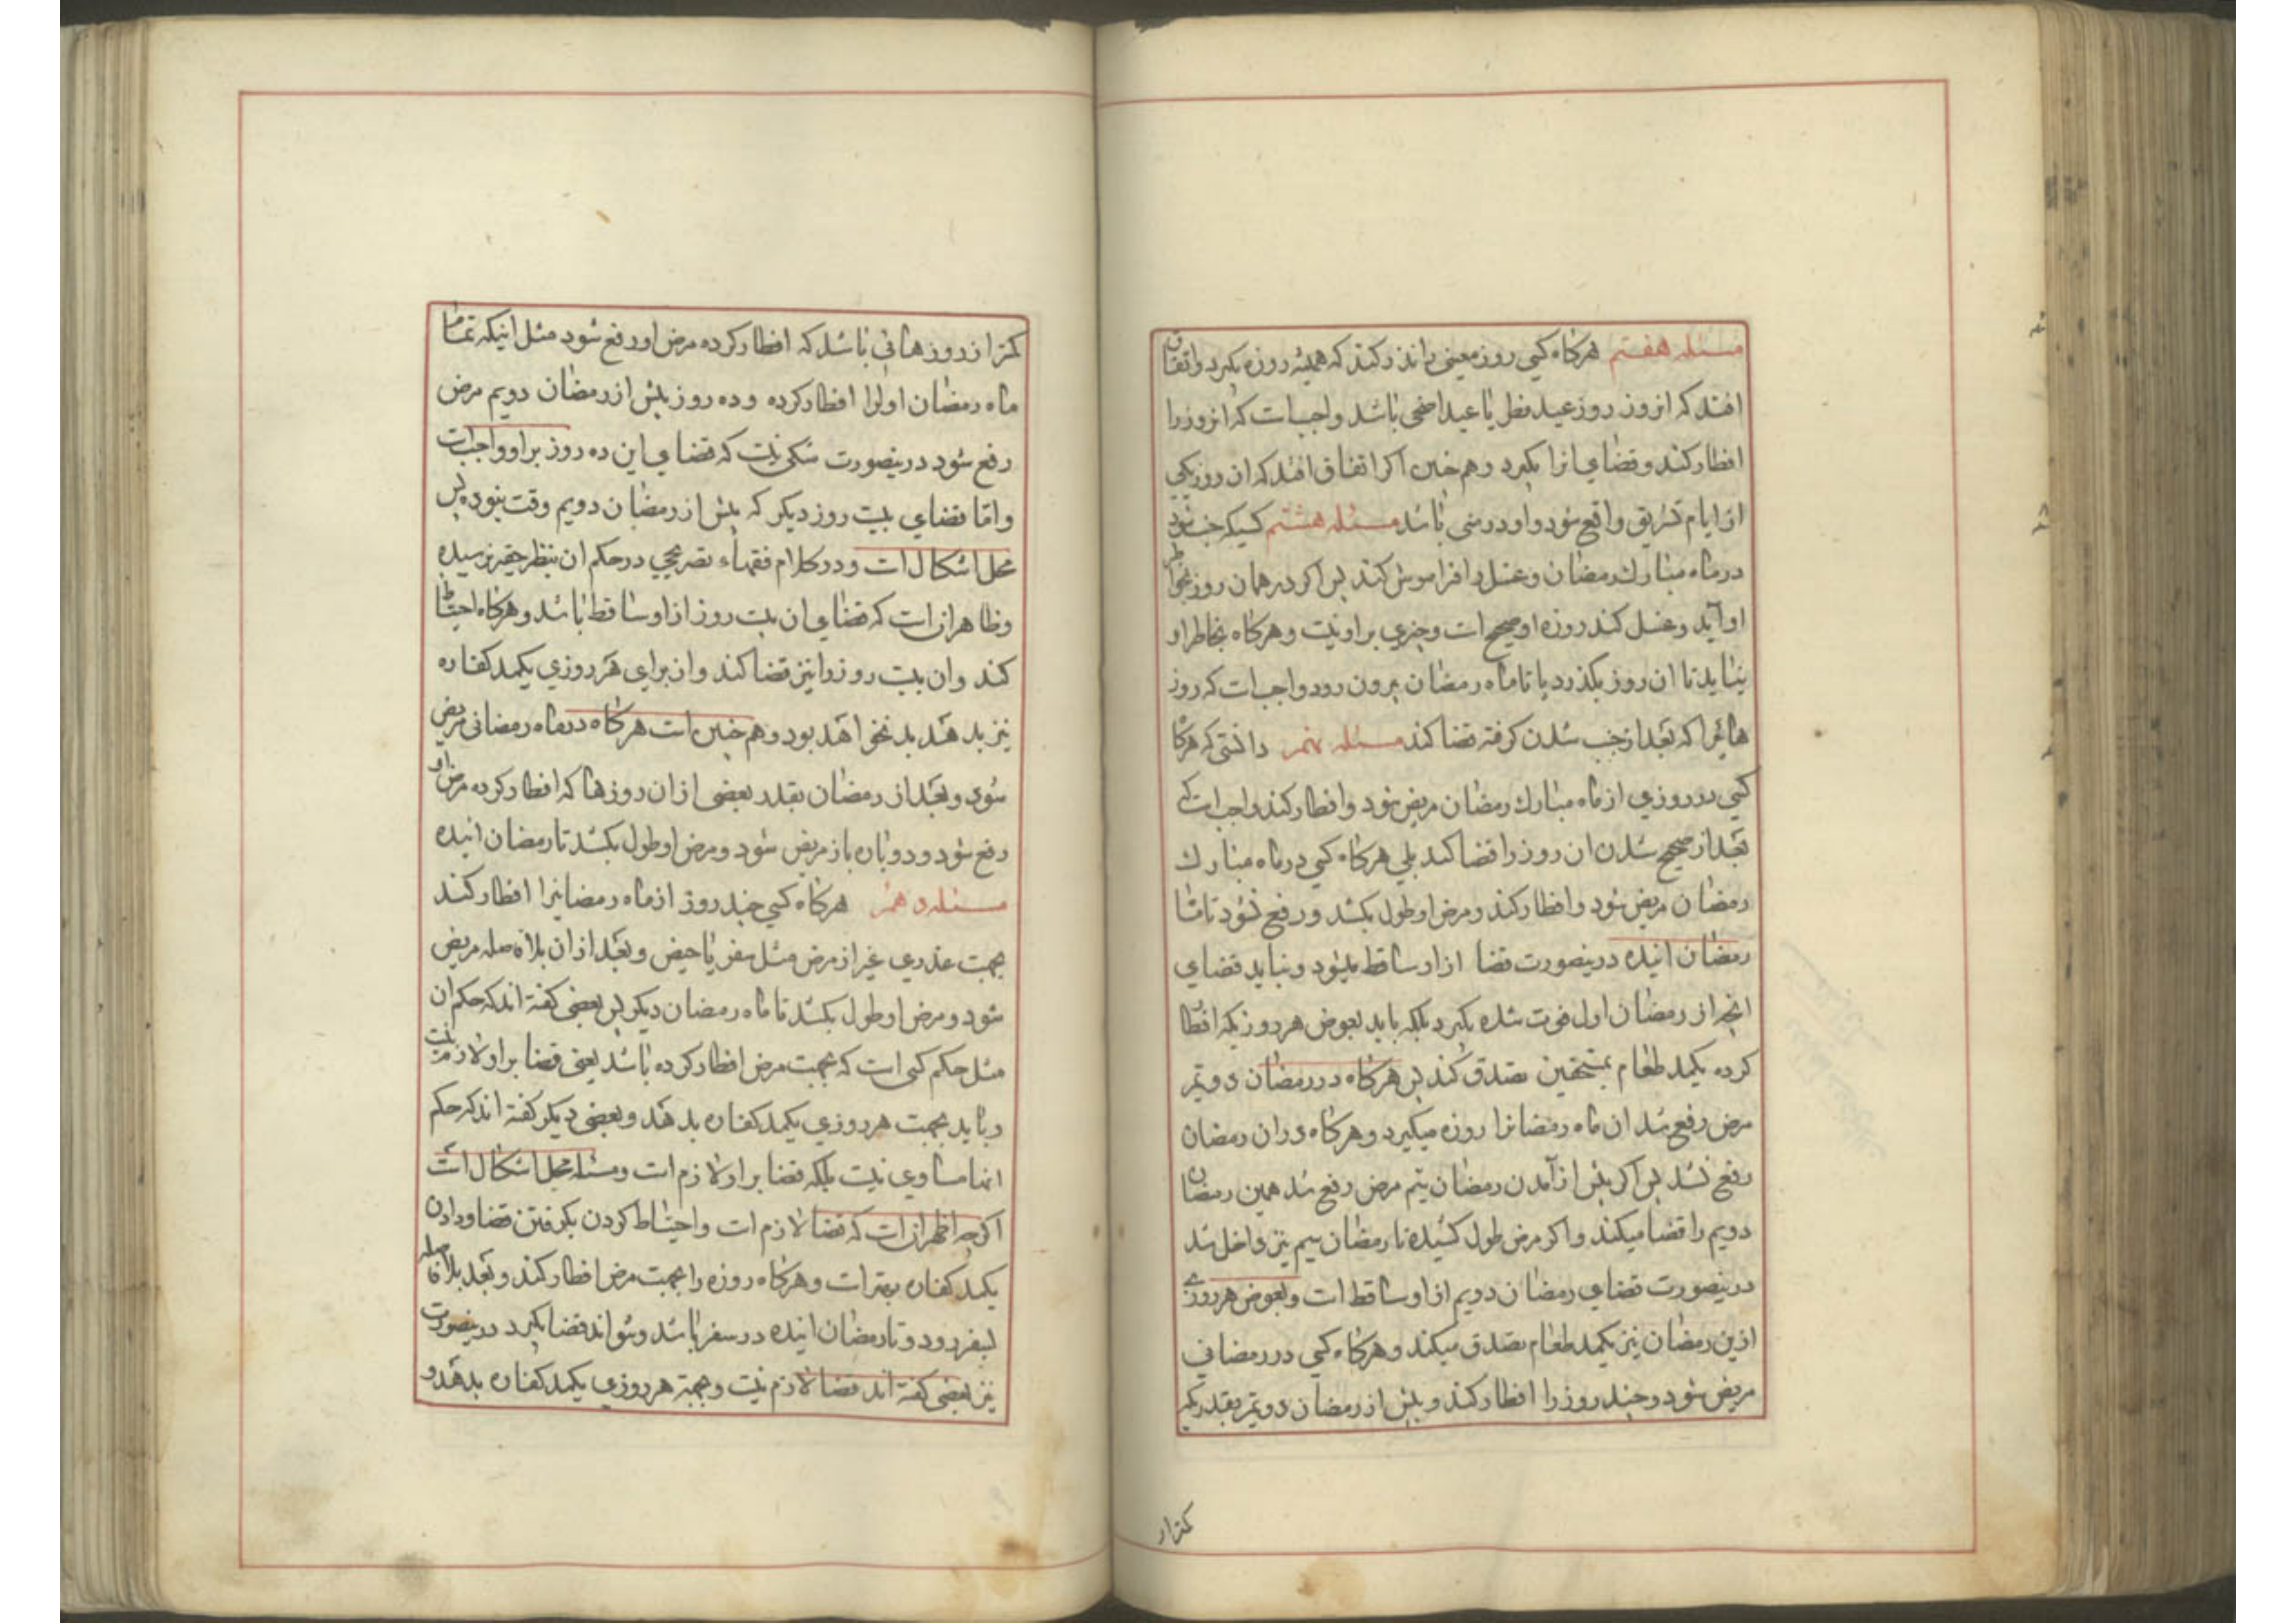 مسئله هفتم هرکاه کسی روز معینی را نذر کند که همیشه روزه بکیرد واتفاق
افتد که انروز روز عید فطر یا عید اضحی باشد واجب است که انروز را
افطار کند وقضای انرا بکیرد وهم چنین اکر اتفاق افتد که ان روز یکی
از ایام تشریق واقع شود واو در منی باشد مسئله هشتم کسیکه جنب شود
در ماه مبارک رمضان وغسل را فراموش کند پس اکر در همان روز بخواطر
او آید وغسل کند روزه او صحیح است وچیزی بر او نیست وهرکاه بخاطر او
نیاید تا ان روز بکذرد یا تا ماه رمضان بیرون رود واجب است که روز
هائیرا که بعد از جنب شدن کرفته قضا کند مسئله نهم دانستی که هرکا
کسی در روزی از ماه مبارک رمضان مریض شود وافطار کند واجب است که
بعد از صحیح شدن ان روز را قضا کند بلی هرکاه کسی در ماه مبارک
رمضان مریض شود وافطار کند ومرض او طول بکشد ورفع نشود تا ماه
رمضان اینده درینصورت قضا از او ساقط میشود ونباید قضای
انچه از رمضان اول فوت شده بکیرد بلکه باید بعوض هر روزیکه افطار
کرده یکمد طعام بمستحقین تصدق کند پس هرکاه در رمضان دویم
مرض رفع شد ان ماه رمضانرا روزه میکیرد وهرکاه در ان رمضان
رفع نشد پس اکر پیش از آمدن رمضان سیم مرض رفع شد همین رمضان
دویم را قضا میکند واکر مرض طول کشیده تا رمضان سیم نیز داخل شد
درینصورت قضای رمضان دویم از او ساقط است وبعوض هر روزی
ازین رمضان نیز یکمد طعام تصدق میکند وهرکاه کسی در رمضانی
مریض شود وچند روز را افطار کند وپیش از رمضان دویم بقدریکه
کمتر از
کمتر از روزهائی باشد که افطار کرده مرض او رفع شود مثل اینکه تمام
ماه رمضان اولرا افطار کرده وده روز پیش از رمضان دویم مرض
رفع شود درینصورت شکی نیست که قضای این ده روز بر او واجبست
واما قضای بیست روز دیکر که پیش از رمضان دویم وقت نبوده پس
محل اشکال است ودر کلام فقهاء تصریحی در حکم ان بنظر حقیر نرسیده
وظاهر انست که قضای ان بیست روز از او ساقط باشد وهرکاه احتیاط
کند وان بیست روز را نیز قضا کند واز برای هر روزی یکمد کفاره
نیز بدهد بد نخواهد بود وهم چنین است هرکاه در ماه رمضانی مریض
شود وبعد از رمضان بقدر بعضی از ان روزها که افطار کرده مرض او
رفع شود ودوباره باز مریض شود ومرض او طول بکشد تا رمضان اینده
مسئله دهم هرکاه کسی چند روز از ماه رمضانرا افطار کند
بجهت عذری غیر از مرض مثل سفر یا حیض وبعد از ان بلافاصله مریض
شود ومرض او طول بکشد تا ماه رمضان دیکر پس بعضی کفته اند که حکم ان
مثل حکم کسی است که بجهت مرض افطار کرده باشد یعنی قضا بر او لازم نیست
وباید بجهت هر روزی یکمد کفاره بدهد وبعضی دیکر کفته اند که حکم
انها مساوی نیست بلکه قضا بر او لازم است ومسئله محل اشکال است
اکرچه اظهر انست که قضا لازم است واحتیاط کردن بکرفتن قضا ودادن
یکمد کفاره بهتر است وهرکاه روزه را بجهت مرض افطار کند وبعد بلافاصله
بسفر رود وتا رمضان اینده در سفر باشد ونتواند قضا بکیرد درینصورت
نیز بعضی کفته اند قضا لازم نیست وبجهة هر روزی یکمد کفاره بدهد و